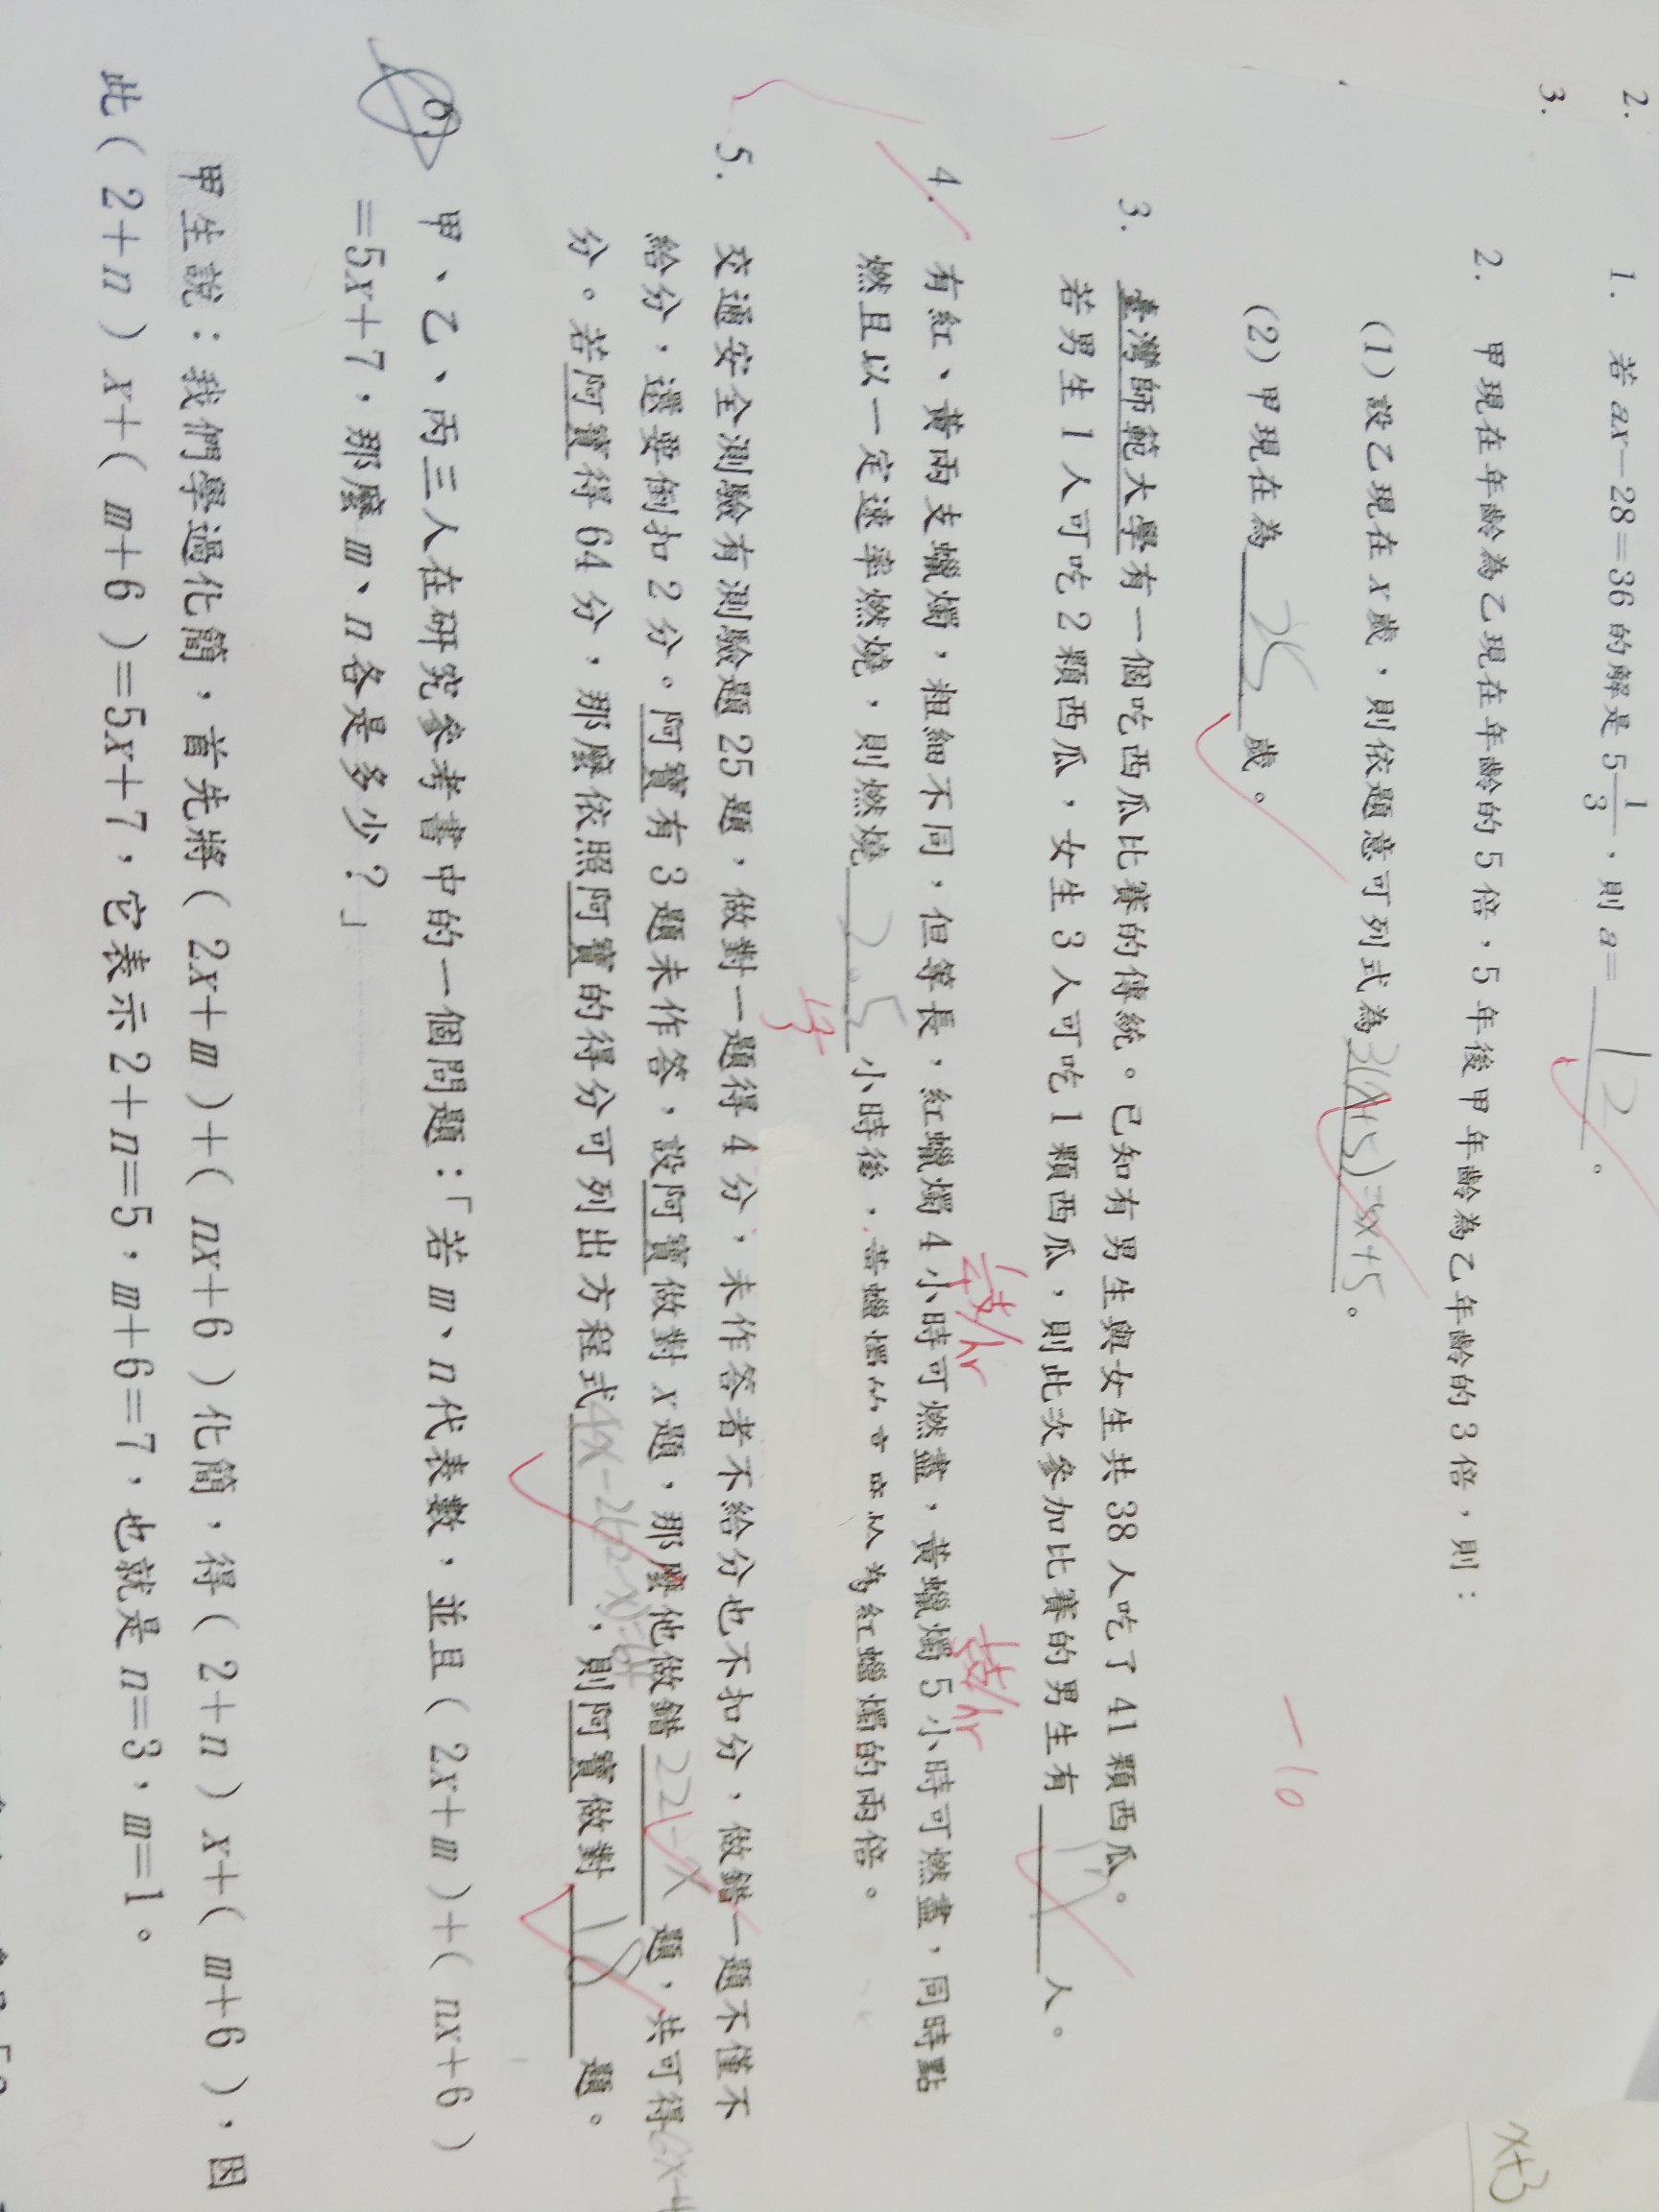 2.
3.
1. 若 ax－28＝36 的解是 5 1/3，則 a＝ 12 。
2. 甲現在年齡為乙現在年齡的 5 倍，5 年後甲年齡為乙年齡的 3 倍，則：
(1) 設乙現在 x 歲，則依題意可列式為 3(x+5)=5x+5 。
(2) 甲現在為 25 歲。
－10
3. 臺灣師範大學有一個吃西瓜比賽的傳統。已知有男生與女生共 38 人吃了 41 顆西瓜。
若男生 1 人可吃 2 顆西瓜，女生 3 人可吃 1 顆西瓜，則此次參加比賽的男生有 人。
4. 有紅、黃兩支蠟燭，粗細不同，但等長，紅蠟燭 4 小時可燃盡，黃蠟燭 5 小時可燃盡，同時點
燃且以一定速率燃燒，則燃燒 2.5 小時後，黃蠟燭 為紅蠟燭的兩倍。
5. 交通安全測驗有測驗題 25 題，做對一題得 4 分，未作答者不給分也不扣分，做錯一題不僅不
給分，還要倒扣 2 分。阿寶有 3 題未作答，設阿寶做對 x 題，那麼他做錯 22－x 題，共可得 6x-4
分。若阿寶得 64 分，那麼依照阿寶的得分可列出方程式 4x－2(22－x)=64 ，則阿寶做對 18 題。
6. 甲、乙、丙三人在研究參考書中的一個問題：「若 m、n 代表數，並且（2x＋m）＋（nx＋6）
＝5x＋7，那麼 m、n 各是多少？」
甲生說：我們學過化簡，首先將（2x＋m）＋（nx＋6）化簡，得（2＋n）x＋（m＋6），因
此（2＋n）x＋（m＋6）＝5x＋7，它表示 2＋n＝5，m＋6＝7，也就是 n＝3，m＝1。
x+3